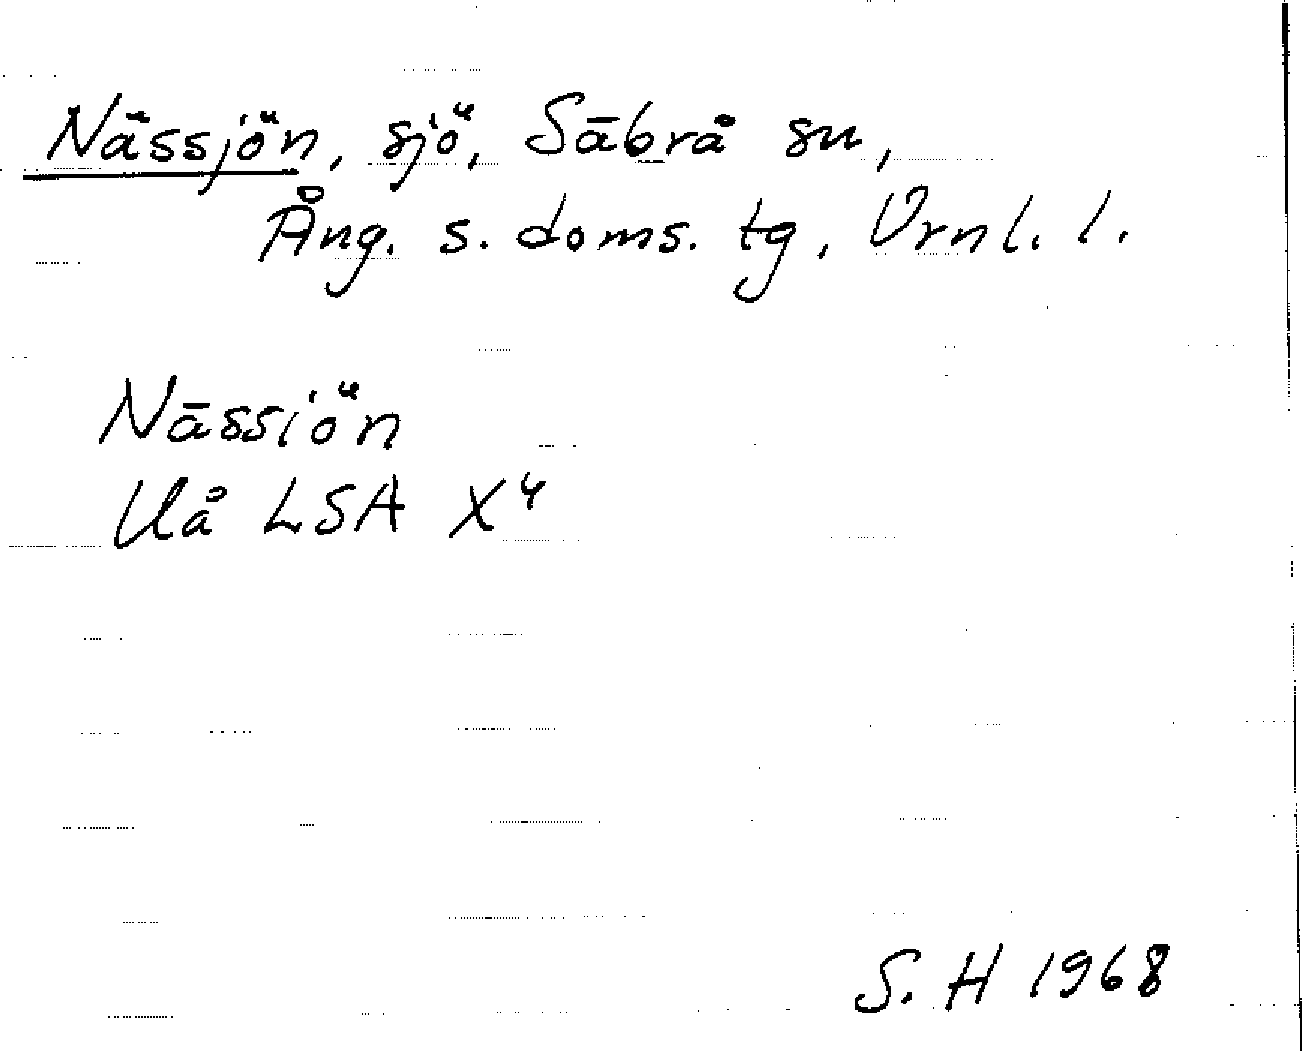 Nässjön, sjö, Säbrå sn,
Ång. s. doms. tg, Vrnl. l.
Nässiön
Uå LSA X4
S. H 1968